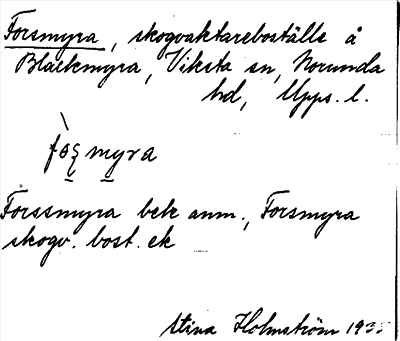 Forsmyra, skogvaktareboställe å
Blackmyra, Viksta sn, Norunda
hd, Upps. l.
fo̱ʂm̱yra
Forssmyra bek anm., Forsmyra
skogv. bost. ek
Stina Holmström